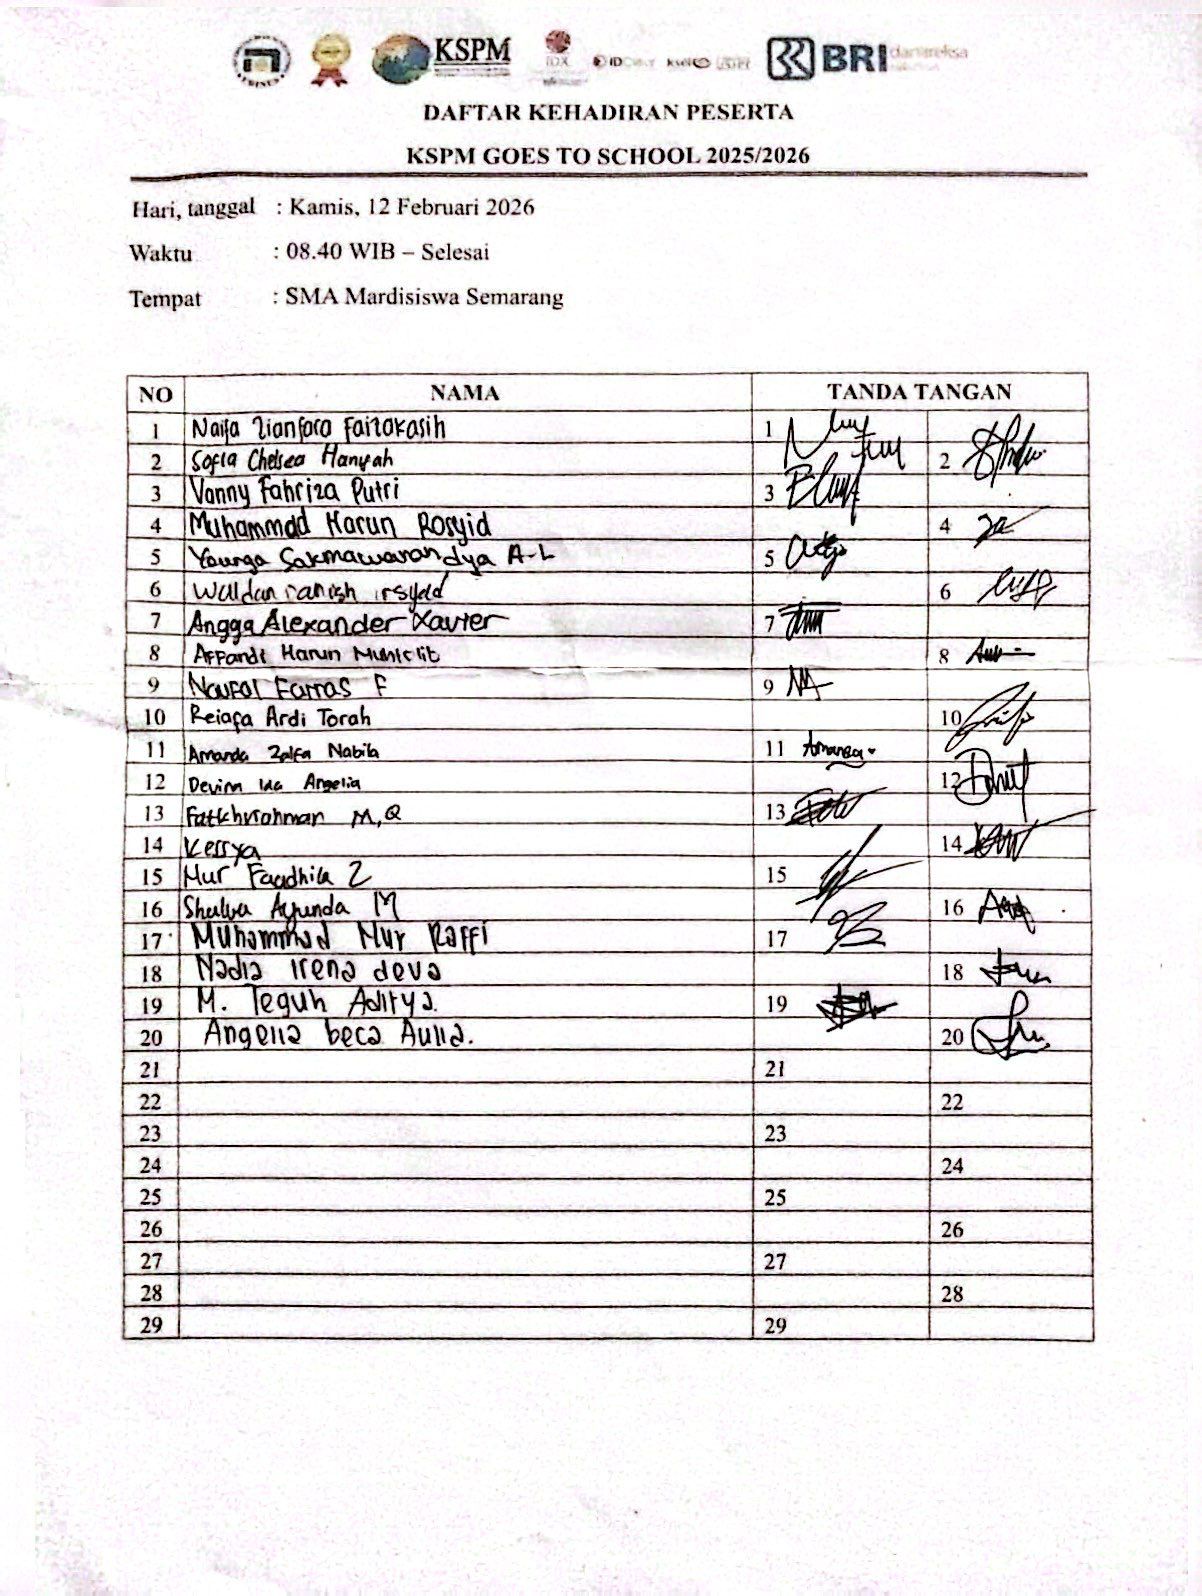 KSPM
IDX
BRI danareksa
DAFTAR KEHADIRAN PESERTA
KSPM GOES TO SCHOOL 2025/2026
Hari, tanggal : Kamis, 12 Februari 2026
Waktu : 08.40 WIB – Selesai
Tempat : SMA Mardisiswa Semarang
NO NAMA TANDA TANGAN
1 Naifa Zianfara Faizakasih 1
2 Sofia Chelsea Haniyah 2
3 Vanny Fahriza Putri 3
4 Muhammad Harun Rosyid 4
5 A-L 5
6 Wildan irsyad 6
7 Angga Alexander Xavier 7
8 Affandi Harun 8
9 Naufal Farras F 9
10 Ardi Torah 10
11 Amanda Zalfa Nabila 11 Amanda
12 Angelia 12
13 Fatkhurohman M,Q 13
14 Kessya 14
15 Nur Faadhila Z 15
16 Ayunda M 16
17 Muhammad Nur Raffi 17
18 Nadia irena deva 18
19 M. Teguh Aditya. 19
20 Angelia beca Aulia. 20
21 21
22 22
23 23
24 24
25 25
26 26
27 27
28 28
29 29